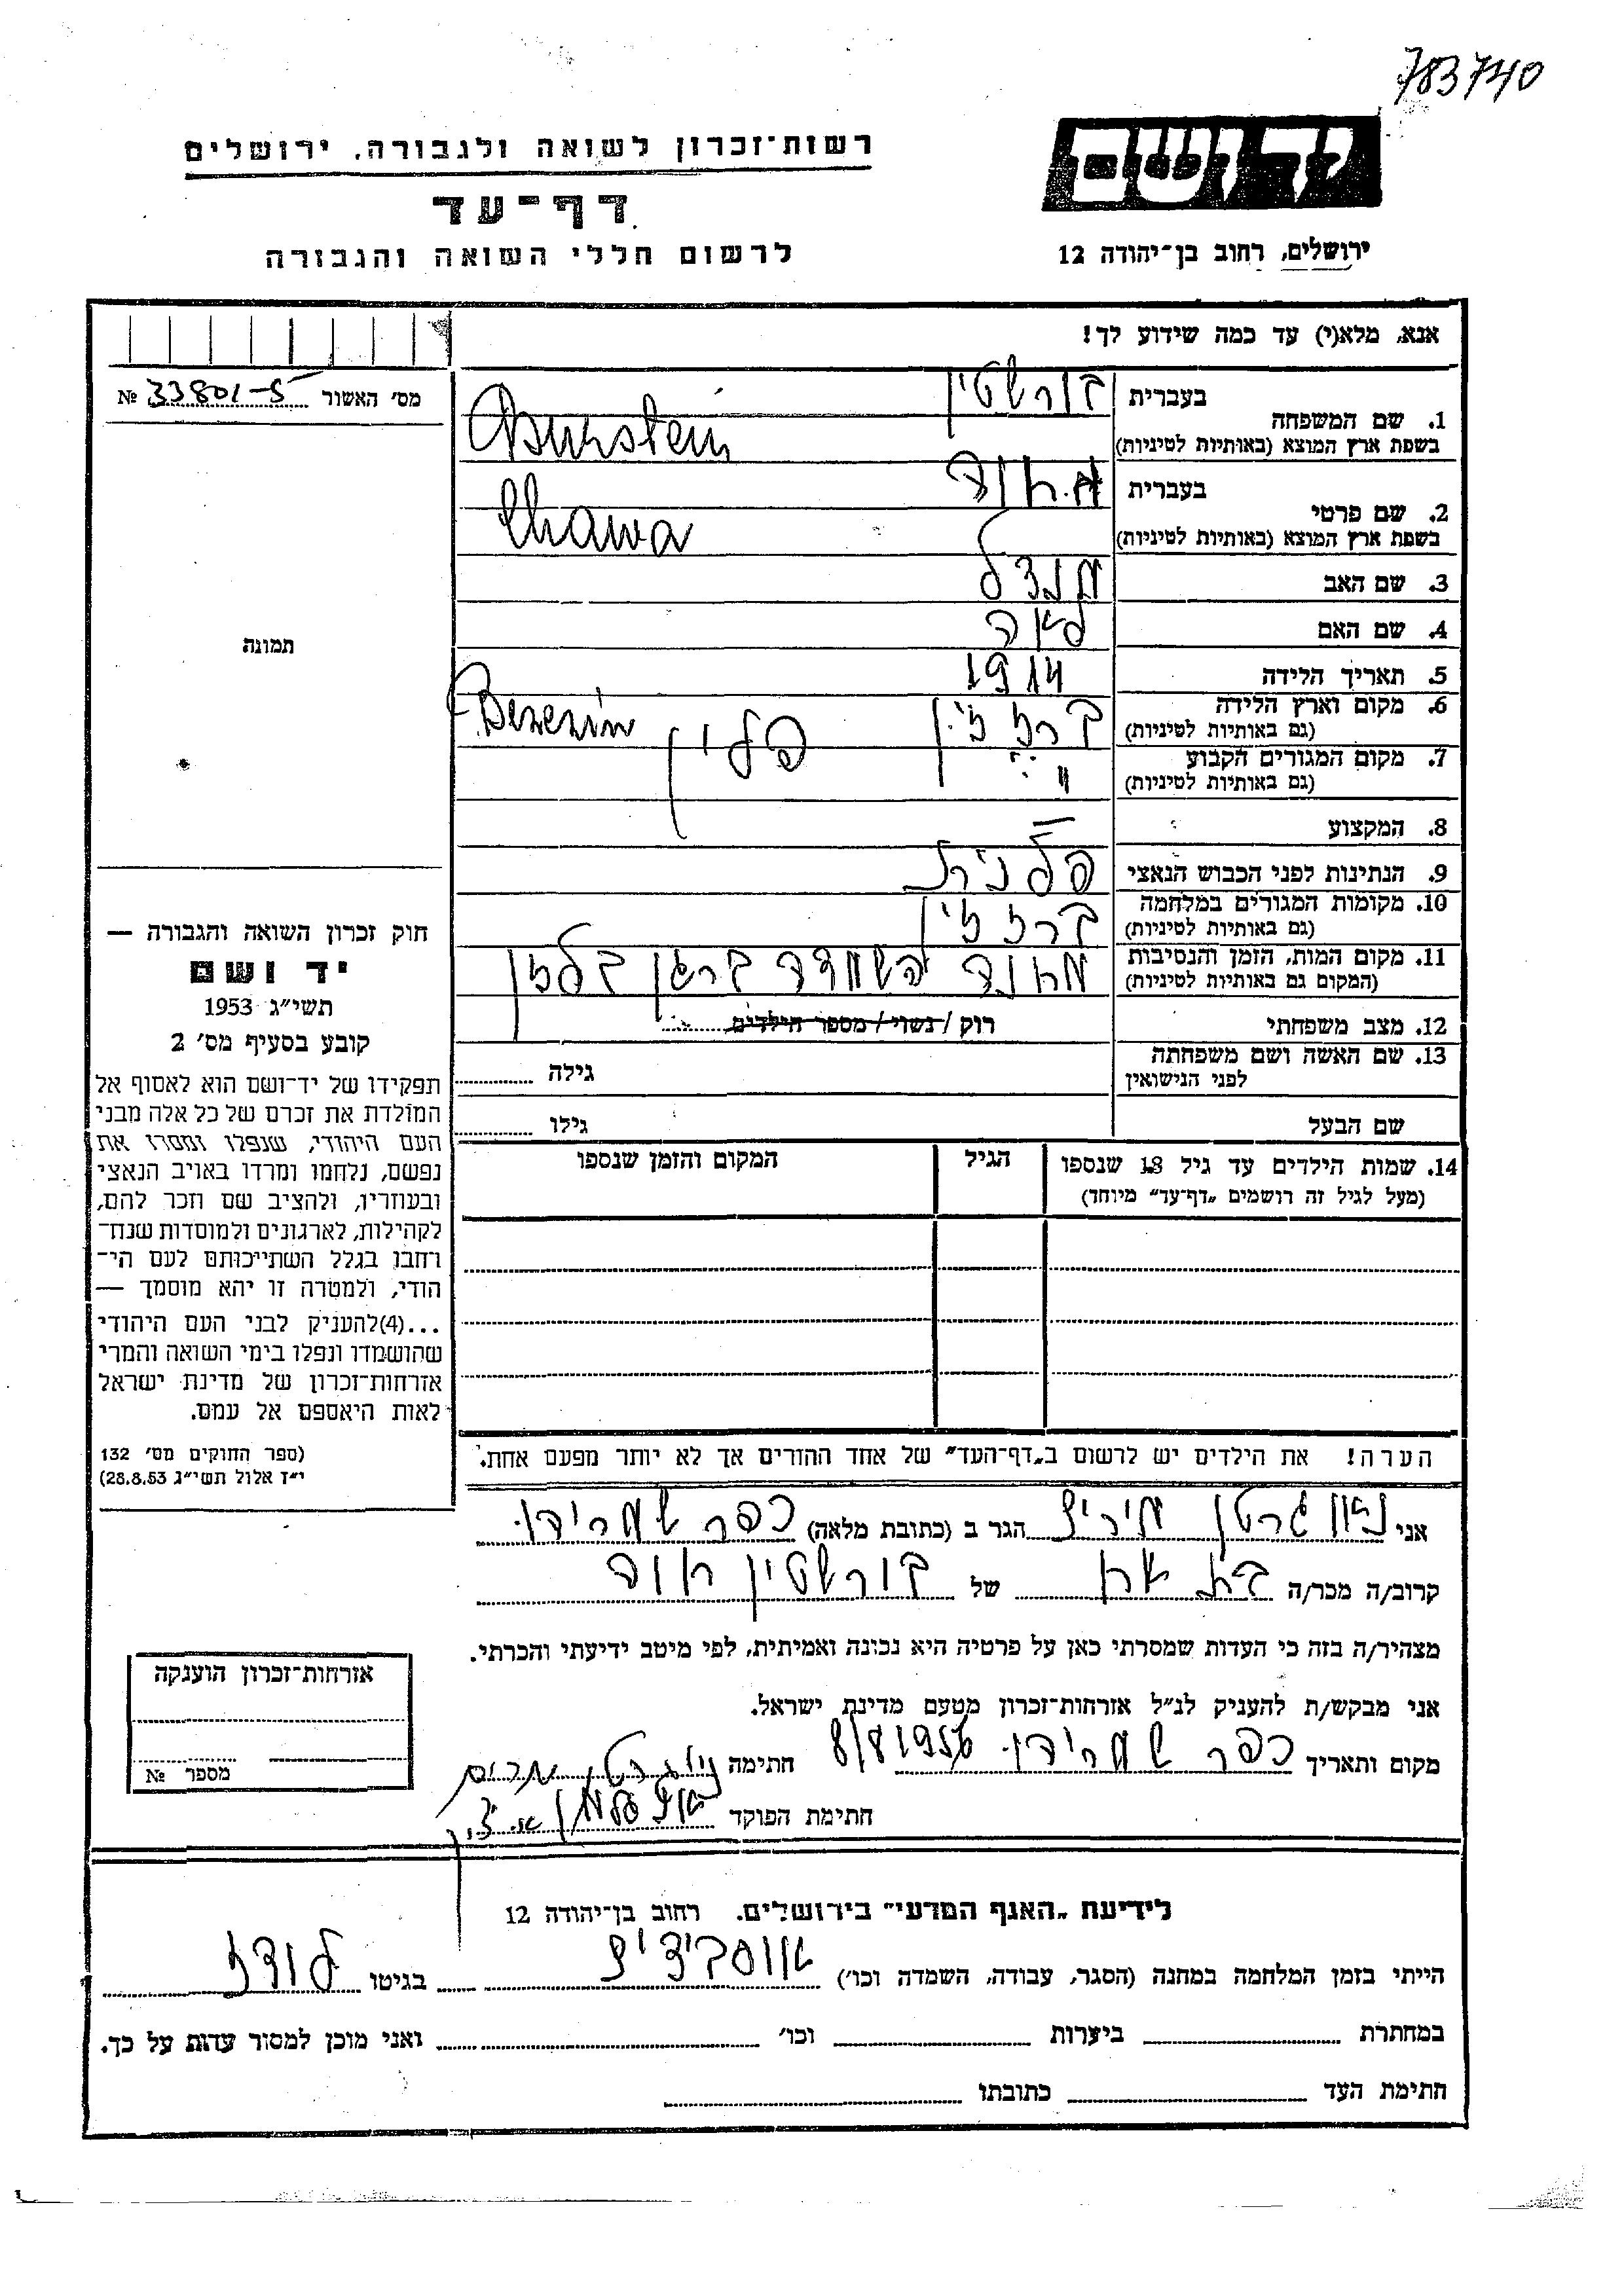 783740
יד ושם
רשות־זכרון לשואה ולגבורה, ירושלים
דף־עד
לרשום חללי השואה והגבורה
ירושלים, רחוב בן־יהודה 12
אנא, מלא(י) עד כמה שידוע לך!
מס׳ האשור № 33801-5
תמונה
1. שם המשפחה בעברית בורשטין
בשפת ארץ המוצא (באותיות לטיניות) Burstein
2. שם פרטי בעברית חוה
בשפת ארץ המוצא (באותיות לטיניות) Chawa
3. שם האב מנדל
4. שם האם לאה
5. תאריך הלידה 1914
6. מקום וארץ הלידה ברזזין פלין Berezin
(גם באותיות לטיניות)
7. מקום המגורים הקבוע "
(גם באותיות לטיניות)
8. המקצוע —
9. הנתינות לפני הכבוש הנאצי פלנית
10. מקומות המגורים במלחמה ברזזין
(גם באותיות לטיניות)
11. מקום המות, הזמן והנסיבות מחנה השמדה ברגן בלזן
(המקום גם באותיות לטיניות)
12. מצב משפחתי רוק / נשוי / מספר הילדים
13. שם האשה ושם משפחתה גילה
לפני הנישואין
שם הבעל גילו
14. שמות הילדים עד גיל 18 שנספו הגיל המקום והזמן שנספו
(מעל לגיל זה רושמים „דף־עד״ מיוחד)
חוק זכרון השואה והגבורה —
יד ושם
תשי״ג 1953
קובע בסעיף מס׳ 2
תפקידו של יד־ושם הוא לאסוף אל
המולדת את זכרם של כל אלה מבני
העם היהודי, שנפלו ומסרו את
נפשם, נלחמו ומרדו באויב הנאצי
ובעוזריו, ולהציב שם וזכר להם,
לקהילות, לארגונים ולמוסדות שנח־
רבו בגלל השתייכותם לעם הי־
הודי, ולמטרה זו יהא מוסמך —
...(4)להעניק לבני העם היהודי
שהושמדו ונפלו בימי השואה והמרי
אזרחות־זכרון של מדינת ישראל
לאות היאספם אל עמם.
(ספר החוקים מס׳ 132
י״ז אלול תשי״ג 28.8.53)
הערה! את הילדים יש לרשום ב„דף־העד״ של אחד ההורים אך לא יותר מפעם אחת.
אני הגר ב (כתובת מלאה) כפר שמריהו
קרוב/ה מכר/ה בת אח של בורשטין חוה
מצהיר/ה בזה כי העדות שמסרתי כאן על פרטיה היא נכונה ואמיתית, לפי מיטב ידיעתי והכרתי.
אני מבקש/ת להעניק לנ״ל אזרחות־זכרון מטעם מדינת ישראל.
מקום ותאריך כפר שמריהו 8/8/1956 חתימה
חתימת הפוקד
אזרחות־זכרון הוענקה
מספר №
לידיעת „האגף המדעי״ בירושלים, רחוב בן־יהודה 12
הייתי בזמן המלחמה במחנה (הסגר, עבודה, השמדה וכו׳) אוסבידיץ בגיטו לודז
במחתרת ביערות וכו׳ ואני מוכן למסור עדות על כך.
חתימת העד כתובתו